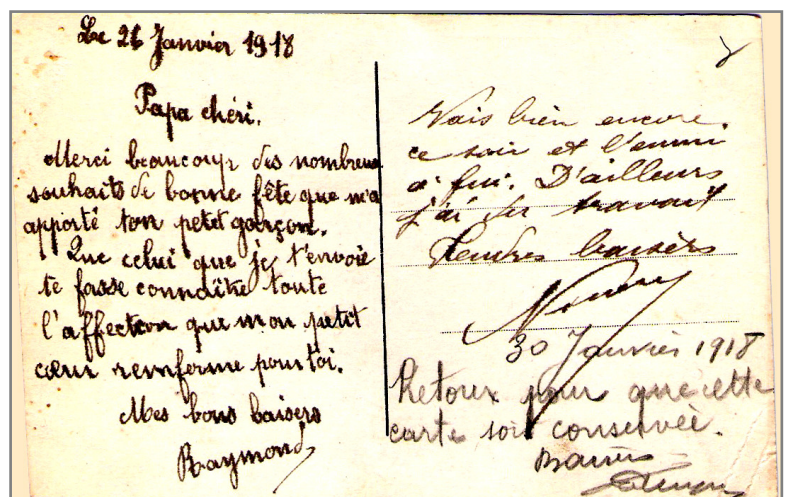 Le 26 Janvier 1918
Papa chéri.
Merci beaucoup des nombreux
souhaits de bonne fête que m'a
apporté ton petit garçon.
Que celui que je t'envoie
te fasse connaître toute
l'affection que mon petit
cœur renferme pour toi.
Mes bons baisers
Raymond
Vais bien encore
ce soir et l'ennui
a fui. D'ailleurs
j'ai du travail
Tendres baisers
30 Janvier 1918
Retour pour que cette
carte soit conservée.